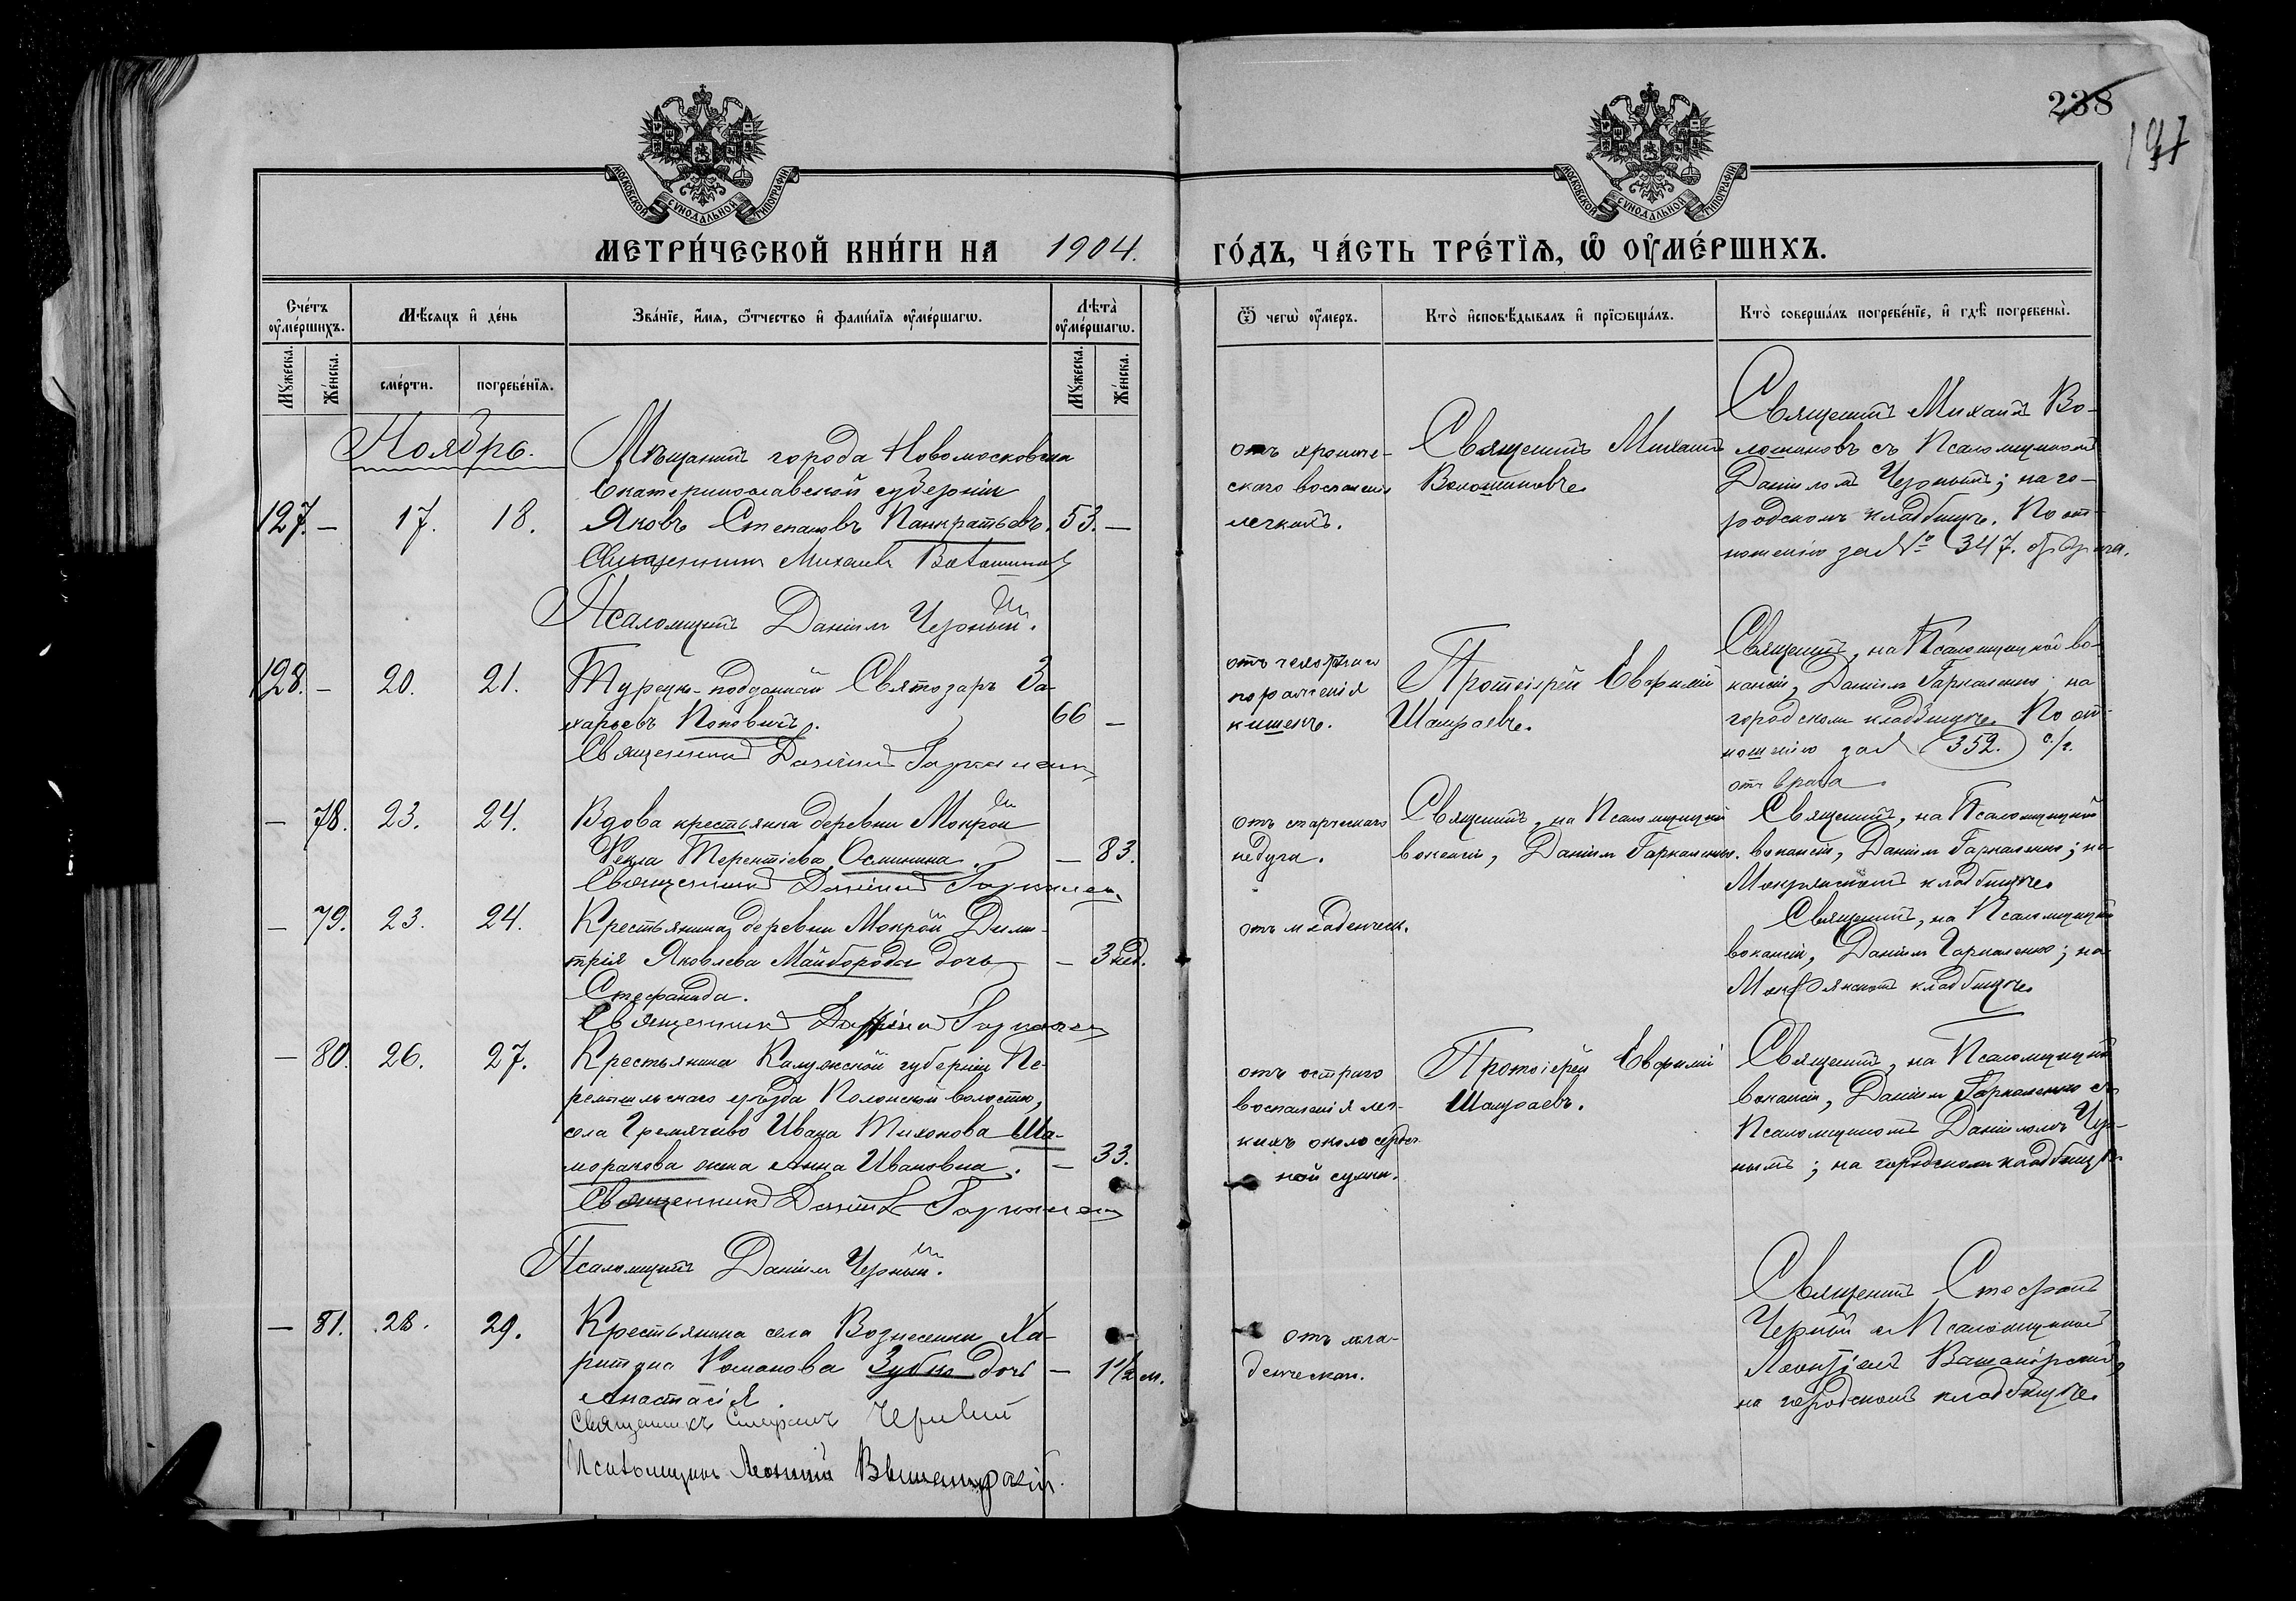 238
197
МОСКОВСКОЙ СѴНОДАЛЬНОЙ ТИПОГРАФІИ
МОСКОВСКОЙ СѴНОДАЛЬНОЙ ТИПОГРАФІИ
МЕТРИ́ЧЕСКОЙ КНИ́ГИ НА 1904. ГО́ДЪ, ЧА́СТЬ ТРЕ́ТЇѦ, Ѽ ОУ҆МЕ́РШИХЪ.
Сче́тъ оу҆ме́ршихъ.
Мѣ́сяцъ и҆ де́нь
Зва́нїе, и҆́мѧ, ѻ҆́тчество и҆ фами́лїѧ оу҆ме́ршагѡ.
Лѣта̀ оу҆ме́ршагѡ.
Ѿ чегѡ̀ оу҆́меръ.
Кто̀ и҆сповѣ́дывалъ и҆ прїѡбща́лъ.
Кто̀ соверша́лъ погребе́нїе, и҆ гдѣ̀ погребены̀.
Мꙋ́жеска.
Же́нска.
сме́рти.
погребе́нїѧ.
Мꙋ́жеска.
Же́нска.
Ноябрь.
Мѣщанинъ города Новомосковска
Екатеринославской губерніи
127. — 17. 18. Яковъ Степановъ Панкратьевъ. 53. —
Священникъ Михаилъ Волошиновъ
Псаломщикъ Даніилъ Черный.
отъ хрониче-
скаго воспаленія
легкихъ.
Священникъ Михаилъ
Волошиновъ
Священникъ Михаилъ Во-
лошиновъ съ Псаломщикомъ
Даніиломъ Чернымъ; на го-
родскомъ кладбищѣ. По от-
ношенію за № 347. отъ врача.
128. — 20. 21. Турецко-подданный Святозаръ За-
харьевъ Поповичъ. 66 —
Священникъ Даніилъ Гаркаленко
отъ
пораженія
кишекъ.
Протоіерей Евфимій
Шамраевъ.
Священникъ, на Псаломщицкой ва-
кансіи, Даніилъ Гаркаленко; на
городскомъ кладбищѣ. По от-
ношенію за № 352. с/г.
отъ врача
— 78. 23. 24. Вдова крестьянка деревни Мокрой
Ѳекла Терентіева Осминина. — 83.
Священникъ Даніилъ Гаркаленко
отъ старческаго
недуга.
Священникъ, на Псаломщицкой
вакансіи, Даніилъ Гаркаленко.
Священникъ, на Псаломщицкой
вакансіи, Даніилъ Гаркаленко; на
Мокрянскомъ кладбищѣ
— 79. 23. 24. Крестьянина деревни Мокрой Дими-
трія Яковлева Майбороды дочь — 3 нед.
Стефанида.
Священникъ Даніилъ Гаркаленко
отъ младенческ.
Священникъ, на Псаломщицкой
вакансіи, Даніилъ Гаркаленко; на
Мокрянскомъ кладбищѣ
— 80. 26. 27. Крестьянина Калужской губерніи Пе-
ремышльскаго уѣзда Полонской волости,
села Гремячево Ивана Тихонова Ша-
моракова жена Анна Ивановна. — 33.
Священникъ Даніилъ Гаркаленко
Псаломщикъ Даніилъ Черный.
отъ остраго
воспаленія лег-
кихъ около сердеч-
ной сумки.
Протоіерей Евфимій
Шамраевъ.
Священникъ, на Псаломщицкой
вакансіи, Даніилъ Гаркаленко съ
Псаломщикомъ Даніиломъ Чер-
нымъ; на городскомъ кладбищѣ
— 81. 28. 29. Крестьянина села Вознесенки Ха-
ритона Романова Зубко дочь — 1 1/2 м.
Анастасія
Священникъ Стефанъ Черный
Псаломщикъ Леонтій Вышемірскій.
отъ мла-
денческаго.
Священникъ Стефанъ
Черный и Псаломщикъ
Леонтій Вышемірскій,
на городскомъ кладбищѣ